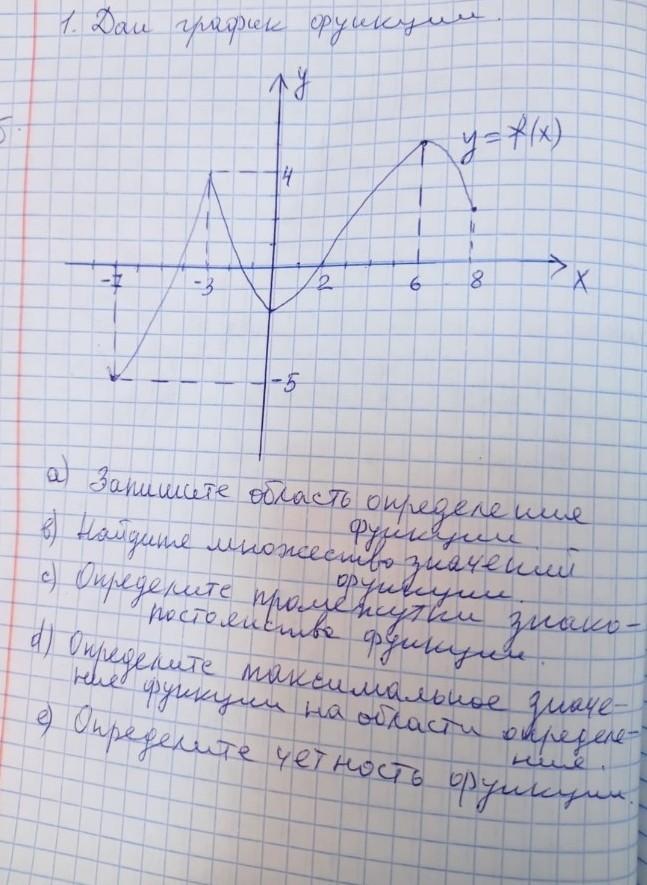 1. Дан график функции.
y
y = f(x)
4
-7 -3 2 6 8 x
-5
a) Запишите область определения
функции.
b) Найдите множество значений
функции.
c) Определите промежутки знако-
постоянства функции.
d) Определите максимальное значе-
ние функции на области определе-
ния.
e) Определите четность функции.